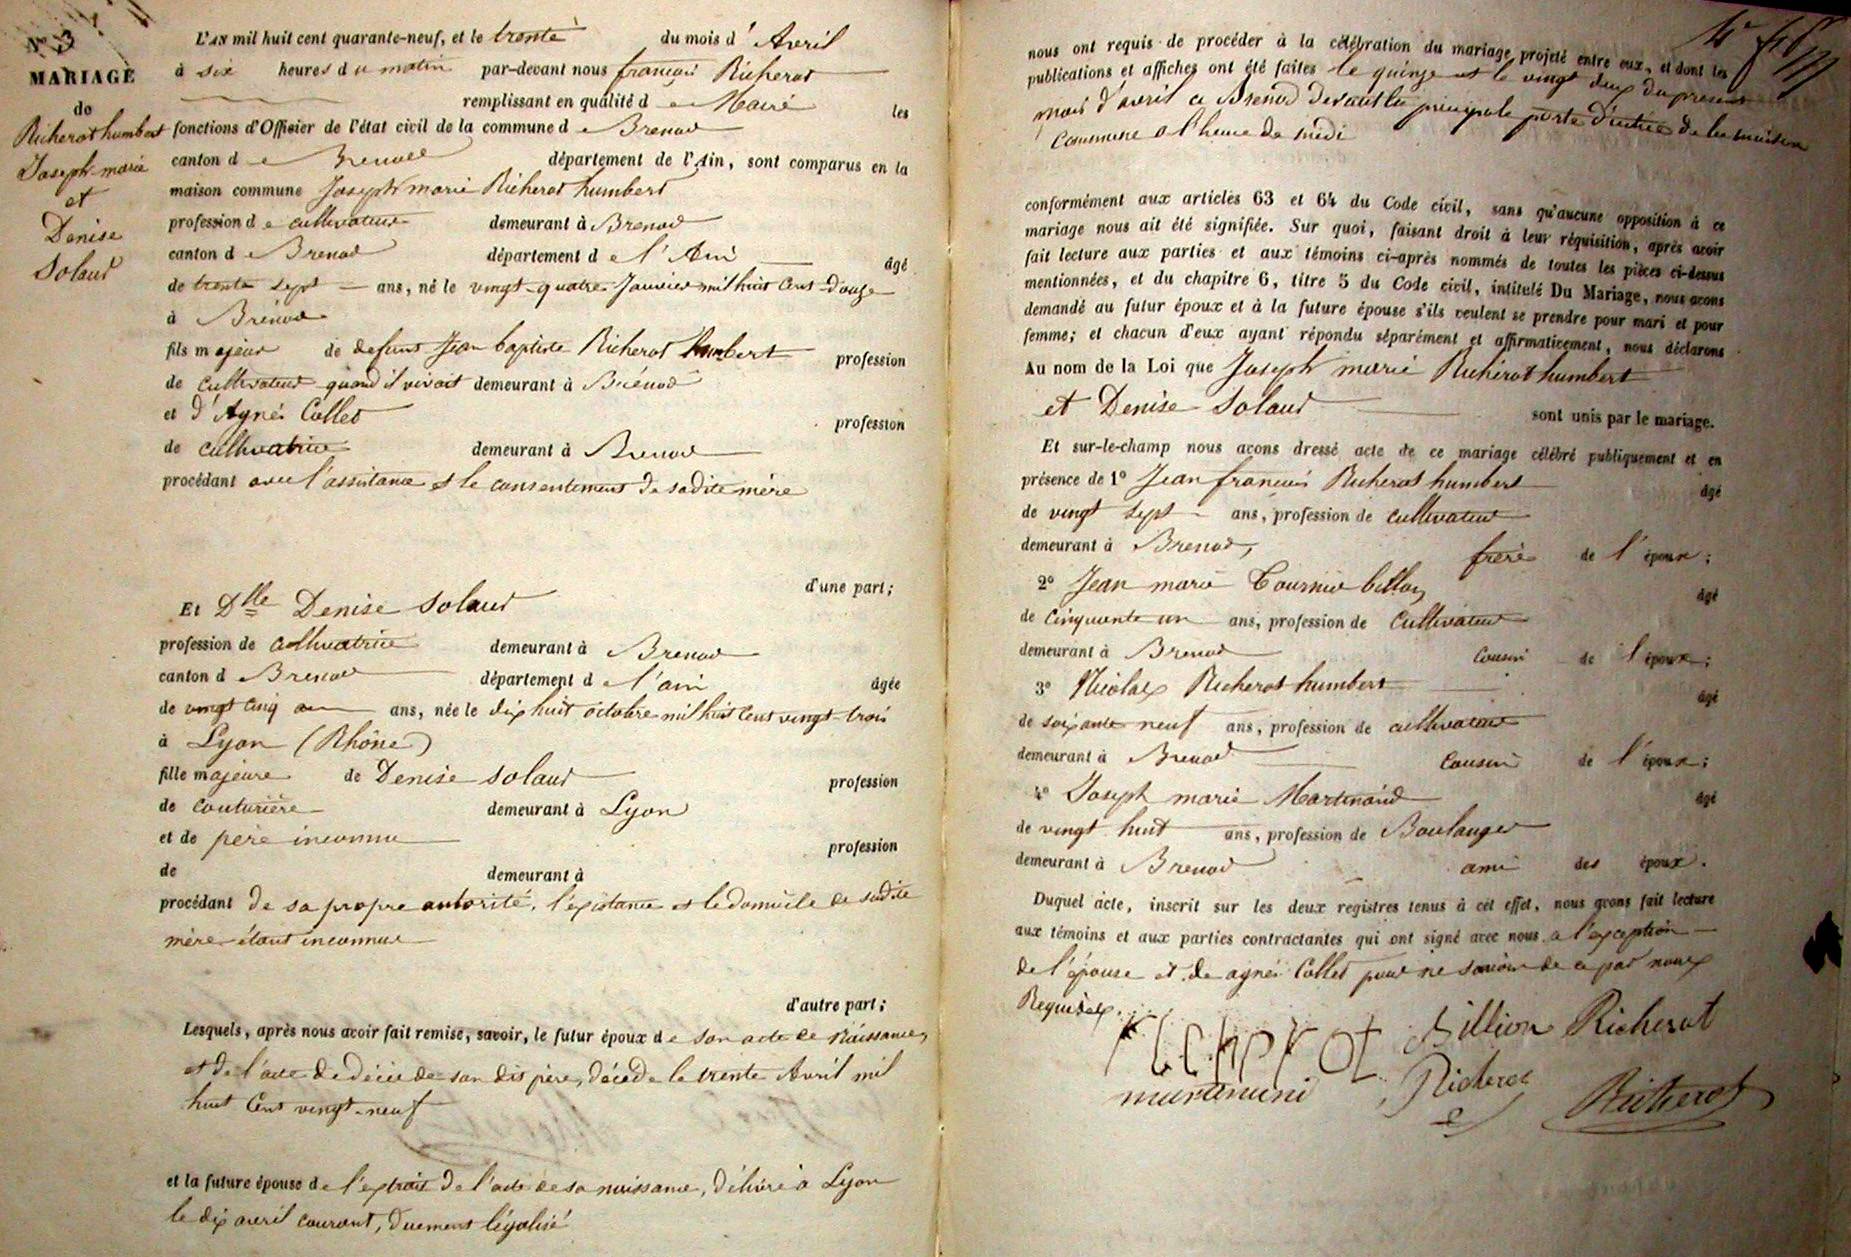 N° 3
MARIAGE
de
Richerot humbert
Joseph marie
et
Denise
Solaud
L'AN mil huit cent quarante-neuf, et le trente du mois d'Avril
à six heures du matin par-devant nous françois Richerot
remplissant en qualité de Maire les
fonctions d'Officier de l'état civil de la commune de Brenod
canton de Brenod département de l'Ain, sont comparus en la
maison commune Joseph marie Richerot humbert
profession de cultivateur demeurant à Brenod
canton de Brenod département de l'Ain âgé
de trente sept ans, né le vingt-quatre Janvier mil huit cent douze
à Brénod
fils majeur de defunt Jean baptiste Richerot humbert profession
de cultivateur quand il vivait demeurant à Brénod
et d'Agnés Collet profession
de cultivatrice demeurant à Brenod
procédant avec l'assistance et le consentement de sadite mère
d'une part;
Et Dlle Denise Solaud
profession de cultivatrice demeurant à Brenod
canton d Brenod département de l'ain âgée
de vingt cinq ans, née le dix huit octobre mil huit cent vingt-trois
à Lyon (Rhône)
fille majeure de Denise Solaud profession
de couturière demeurant à Lyon
et de père inconnu profession
de demeurant à
procédant de sa propre autorité, l'existance et le domicile de sadite
mère étant inconnus
d'autre part;
Lesquels, après nous avoir fait remise, savoir, le futur époux de son acte de Naissance,
et de l'acte de décès de son dit père, décédé le trente Avril mil
huit cent vingt-neuf
et la future épouse de l'extrait de l'acte de sa naissance, délivré à Lyon
le dix avril courant, duement légalisé
nous ont requis de procéder à la célébration du mariage projeté entre eux, et dont les
publications et affiches ont été faites le quinze et le vingt deux du présent
mois d'avril a Brenod devant la principale porte d'entrée de la maison
commune a l'heure de midi
conformément aux articles 63 et 64 du Code civil, sans qu'aucune opposition à ce
mariage nous ait été signifiée. Sur quoi, faisant droit à leur réquisition, après avoir
fait lecture aux parties et aux témoins ci-après nommés de toutes les pièces ci-dessus
mentionnées, et du chapitre 6, titre 5 du Code civil, intitulé Du Mariage, nous avons
demandé au futur époux et à la future épouse s'ils veulent se prendre pour mari et pour
femme; et chacun d'eux ayant répondu séparément et affirmativement, nous déclarons
Au nom de la Loi que Joseph marie Richérot humbert
et Denise Solaud sont unis par le mariage.
Et sur-le-champ nous avons dressé acte de ce mariage célébré publiquement et en
présence de 1° Jean françois Richerot humbert âgé
de vingt sept ans, profession de cultivateur
demeurant à Brenod, frère de l'époux;
2° Jean marie Tournier billon âgé
de cinquante un ans, profession de cultivateur
demeurant à Brenod cousin de l'époux;
3° Nicolas Richerot humbert âgé
de soixante neuf ans, profession de cultivateur
demeurant à Brenod cousin de l'époux;
4° Joseph marie Martinaud âgé
de vingt huit ans, profession de Boulanger
demeurant à Brenod ami des époux.
Duquel acte, inscrit sur les deux registres tenus à cet effet, nous avons fait lecture
aux témoins et aux parties contractantes qui ont signé avec nous a l'exception
de l'épouse et de agnés Collet pour ne savoir de ce par nous
Requises.
richerot Billion Richerot
Richerot Richerot